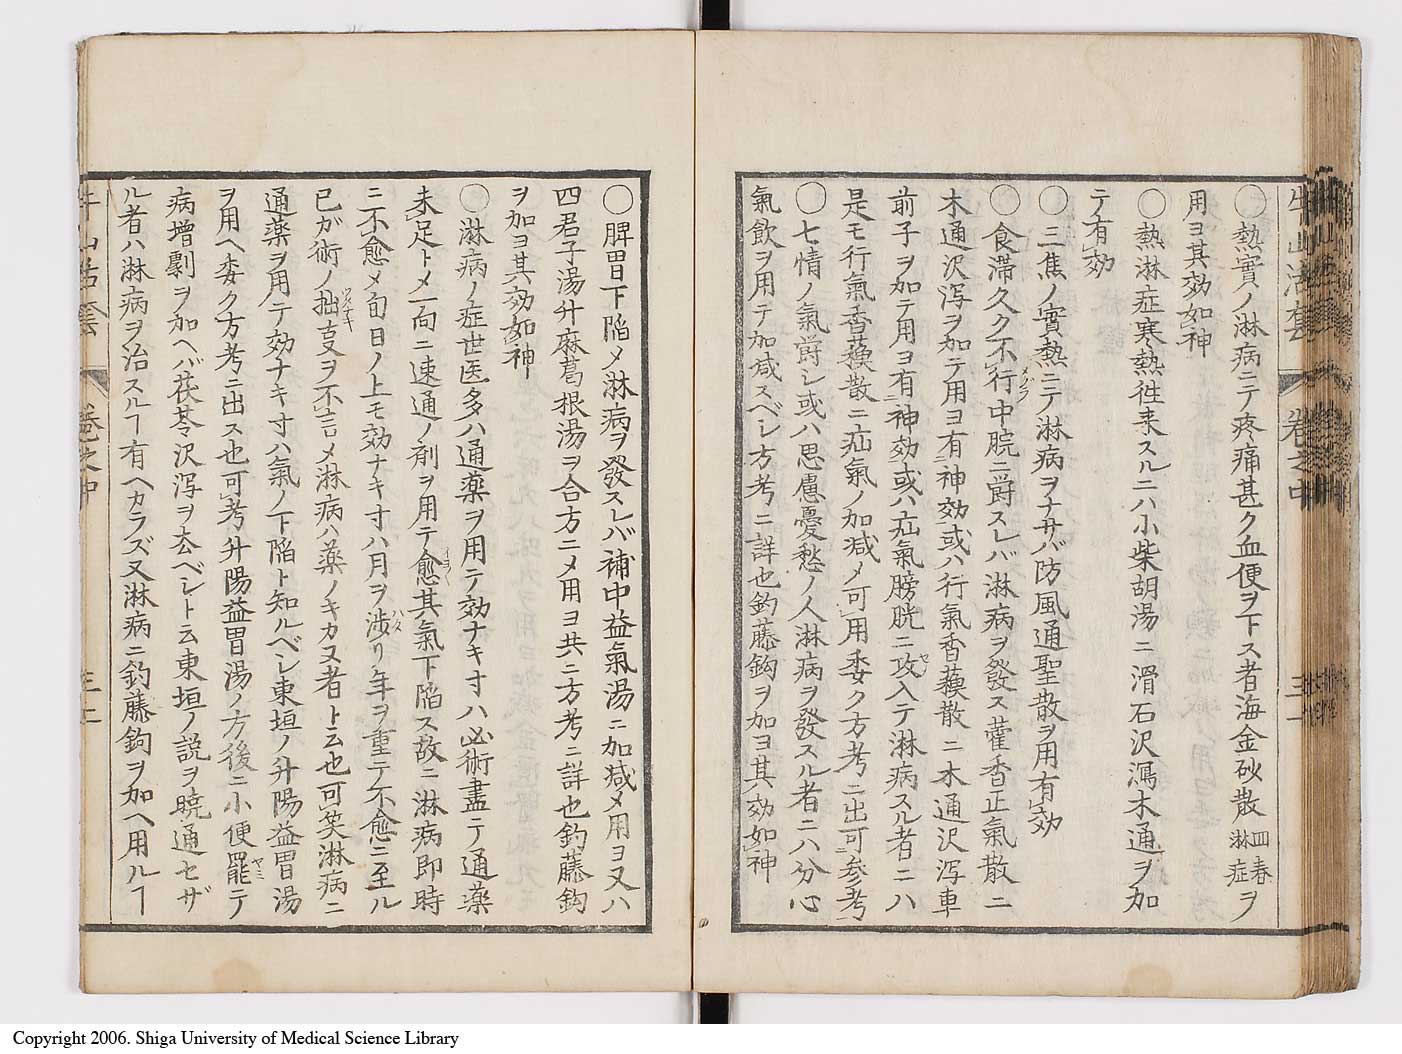 牛山活套 卷之中 三十一
〇熱實ノ淋病ニテ疼痛甚ク血便ヲ下ス者海金砂散四春淋症ヲ
用ヨ其効如神
〇熱淋症寒熱徃来スルニハ小柴胡湯ニ滑石沢瀉木通ヲ加
テ有効
〇三焦ノ實熱ニテ淋病ヲナサバ防風通聖散ヲ用有効
〇食滞久ク不行メグラ中脘ニ欝スレバ淋病ヲ發ス藿香正氣散ニ
木通沢瀉ヲ加テ用ヨ有神効或ハ行氣香蘓散ニ木通沢瀉車
前子ヲ加テ用ヨ有神効或ハ疝氣膀胱ニ攻セメ入テ淋病スル者ニハ
是モ行氣香蘓散ニ疝氣ノ加減メ可用委ク方考ニ出可参考
〇七情ノ氣欝シ或ハ思慮憂愁ノ人淋病ヲ發スル者ニハ分心
氣飲ヲ用テ加减スベシ方考ニ詳也釣藤鈎ヲ加ヨ其効如神
〇脾胃下陥メ淋病ヲ發スレバ補中益氣湯ニ加减メ用ヨ又ハ
四君子湯升麻葛根湯ヲ合方ニメ用ヨ共ニ方考ニ詳也釣藤鈎
ヲ加ヨ其効如神
〇淋病ノ症世医多ハ通薬ヲ用テ効ナキ寸ハ必術盡テ通薬
未足トメ一向ニ速通ノ剤ヲ用テ愈イヨ〱其氣下陥ス故ニ淋病即時
ニ不愈メ旬日ノ上モ効ナキ寸ハ月ヲ渉ワタリ年ヲ重テ不愈ニ至ル
已ガ術ノ拙ツタナキ亨ヲ不言メ淋病ハ薬ノキカヌ者ト云也可笑淋病ニ
通薬ヲ用テ効ナキ寸ハ氣ノ下陥ト知ルベシ東垣ノ升陽益胃湯
ヲ用ヘ委ク方考ニ出ス也可考升陽益胃湯ノ方後ニ小便罷ヤミテ
病増劇ヲ加ヘバ茯苓沢瀉ヲ去ベシト云東垣ノ説ヲ暁通セザ
ル者ハ淋病ヲ治スルヿ有ヘカラズ又淋病ニ釣藤鈎ヲ加ヘ用ルヿ
牛山活套 卷之中 三十一
Copyright 2006. Shiga University of Medical Science Library